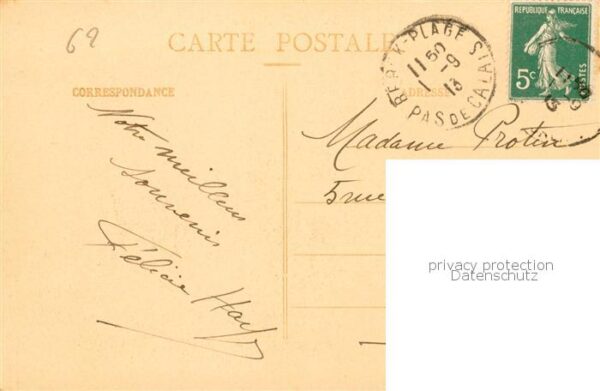 69
CARTE POSTALE
RÉPUBLIQUE FRANÇAISE
5c
POSTES
BERCK-PLAGE
11 50
1 - 9
13
PAS DE CALAIS
CORRESPONDANCE
ADRESSE
Notre meilleur
souvenir
Félicie
Madame Protin
5 rue
privacy protection
Datenschutz